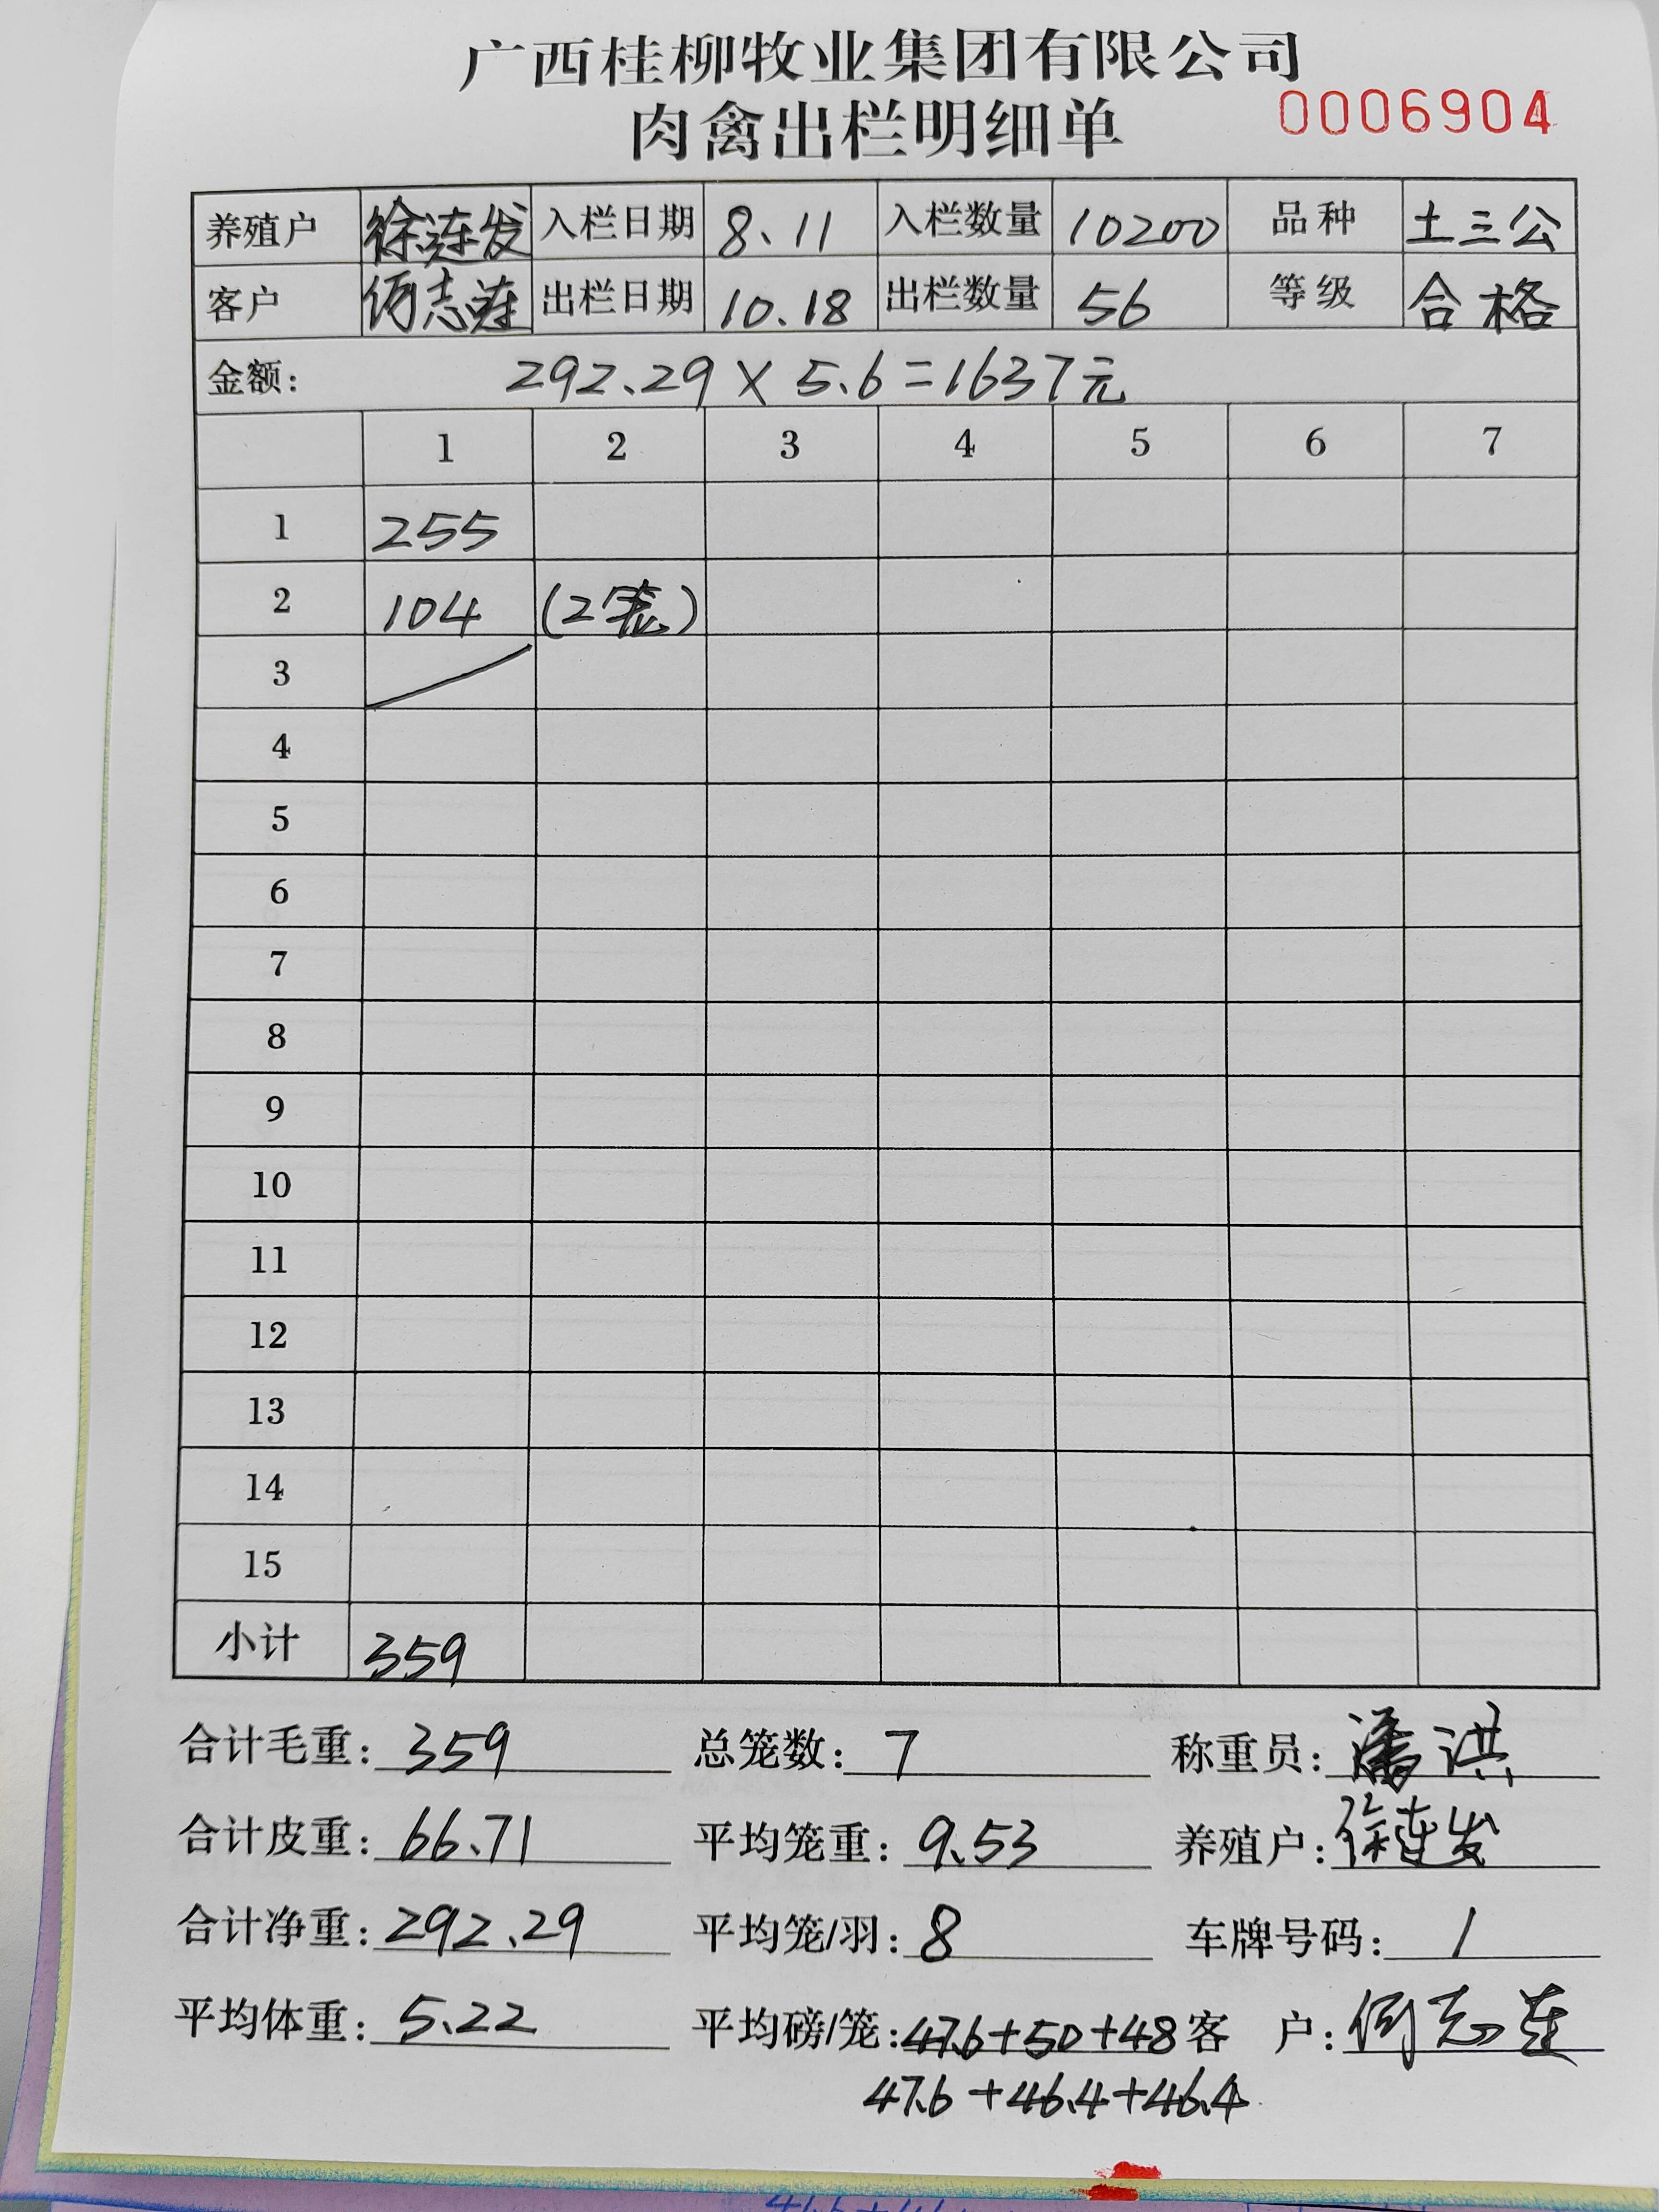 广西桂柳牧业集团有限公司
肉禽出栏明细单
0006904
养殖户 徐连发 入栏日期 8.11 入栏数量 10200 品种 土三公
客户 何志莲 出栏日期 10.18 出栏数量 56 等级 合格
金额: 292.29×5.6=1637元
1 2 3 4 5 6 7
1 255
2 104 (2笼)
3
4
5
6
7
8
9
10
11
12
13
14
15
小计 359
合计毛重: 359 总笼数: 7 称重员: 潘洪
合计皮重: 66.71 平均笼重: 9.53 养殖户: 徐连发
合计净重: 292.29 平均笼/羽: 8 车牌号码: /
平均体重: 5.22 平均磅/笼: 47.6+50+48 客 户: 何志莲
47.6+46.4+46.4